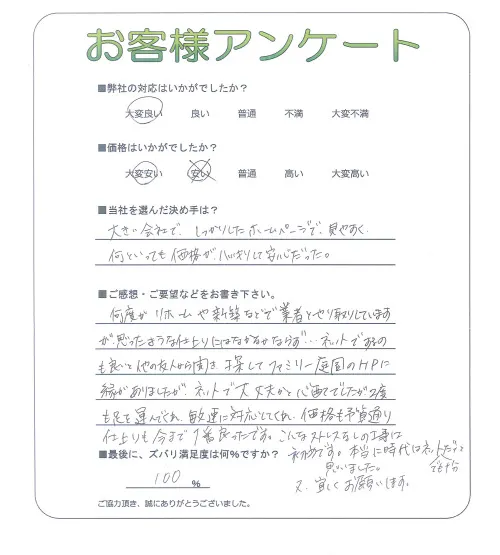 お客様アンケート
■弊社の対応はいかがでしたか？
大変良い 良い 普通 不満 大変不満
■価格はいかがでしたか？
大変安い 安い 普通 高い 大変高い
■当社を選んだ決め手は？
大きい会社で、しっかりしたホームページで、見やすく
何といっても価格がハッキリして安心だった。
■ご感想・ご要望などをお書き下さい。
何度かリホームや新築などで業者とやり取りしています
が、思ったような仕上りにはなかなかならず…ネットでするの
も良いと他の友人から聞き、探してファミリー庭園のHPに
縁がありましたが、ネットで大丈夫かと心配でしたが2度
も足を運んでくれ、敏速に対応してくれ、価格も予算通り
仕上りも今まで1番良かったです。こんなストレスなしの工事は
初めてです。本当に時代はネットだけ
でも十分
思いました。
又、宜しくお願いします。
■最後に、ズバリ満足度は何%ですか？
100 %
ご協力頂き、誠にありがとうございました。